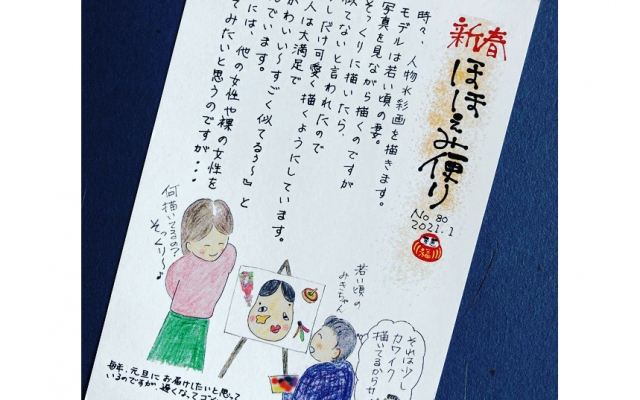 新春
ほほえみ便り
No 80
2021.1
福
時々、人物水彩画を描きます。
モデルは若い頃の妻。
写真を見ながら描くのですが
そっくりに描いたら、
似てないと言われたので
しだけ可愛く描くようにしています。
人は大満足で
かわいい〜すごく似てるぅ〜』と
でいます。
には、他の女性や裸の女性を
てみたいと思うのですが・・・
何描いてるの?
そっくり〜♪
若い頃の
みきちゃん
それは少し
カワイク
描いてるからサ
毎年、元旦にお届けしたいと思って
いるのですが、遅くなってゴン